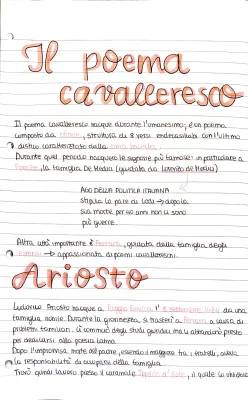 Il poema
cavalleresco
Il poema cavalleresco nacque durante l'umanesimo; è un poema
composto da ottave, struttura di 8 versi endecasillabi con l'ultimo
distico caratterizzato dalla rima baciata.
Durante quel periodo nacquero le signorie più famose: in particolare a
Firenze, la famiglia De Medici (guidata da Lorenzo de Medici)
AGO DELLA POLITICA ITALIANA
stipula la pace di Lodi → dopo la
sua morte per 40 anni non ci sono
più guerre.
Altra città importante è Ferrara, guidata dalla famiglia degli
Estensi → appassionata di poemi cavallereschi.
Ariosto
Ludovico Ariosto nacque a Reggio Emilia l' 8 settembre 1474 da una
famiglia nobile. Durante la giovinezza, si trasferì a Ferrara a causa di
problemi familiari. Lì cominciò degli studi giuridici ma li abbandonò presto
per dedicarsi alla poesia latina.
Dopo l'improvvisa morte del padre, essendo il maggiore tra i fratelli, aveva
la responsabilità di occuparsi della famiglia.
Trovò quindi lavoro presso il cardinale Ippolito d'Este, il quale lo